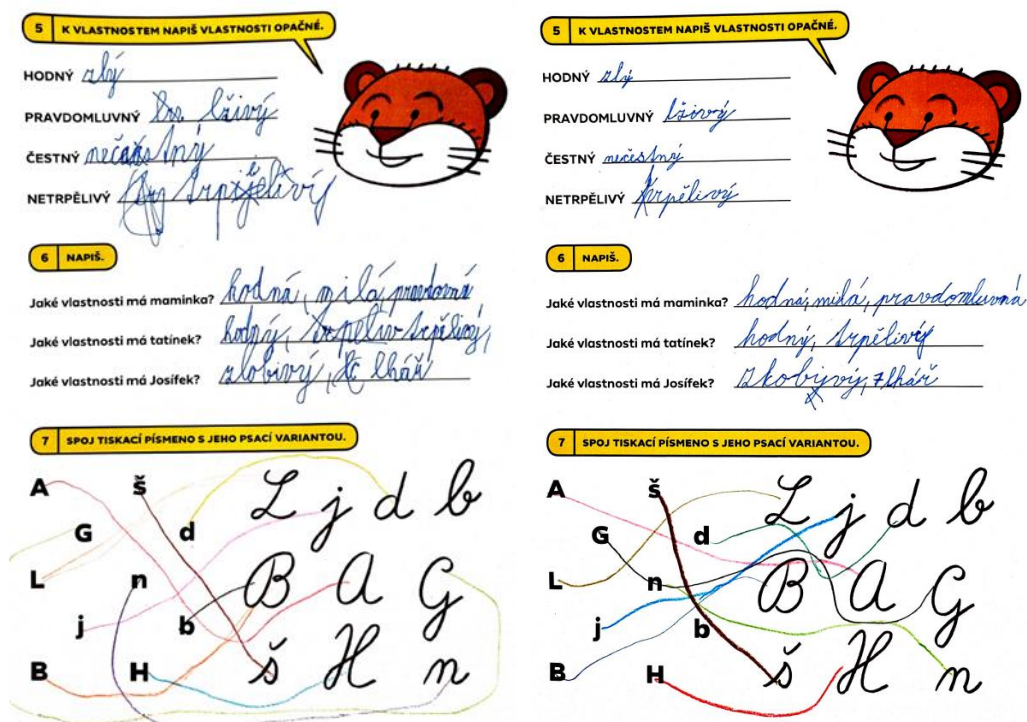 5 K VLASTNOSTEM NAPIŠ VLASTNOSTI OPAČNÉ.
HODNÝ zlý
PRAVDOMLUVNÝ lživý
ČESTNÝ nečestný
NETRPĚLIVÝ trpělivý
6 NAPIŠ.
Jaké vlastnosti má maminka? hodná, milá,
Jaké vlastnosti má tatínek? hodný, trpěliv trpělivý,
Jaké vlastnosti má Josífek? zlobivý, lhář
7 SPOJ TISKACÍ PÍSMENO S JEHO PSACÍ VARIANTOU.
A š L j d b
G d
L n B A G
j b
B H š H n
5 K VLASTNOSTEM NAPIŠ VLASTNOSTI OPAČNÉ.
HODNÝ zlý
PRAVDOMLUVNÝ lživý
ČESTNÝ nečestný
NETRPĚLIVÝ trpělivý
6 NAPIŠ.
Jaké vlastnosti má maminka? hodná, milá, pravdomluvná
Jaké vlastnosti má tatínek? hodný, trpělivý
Jaké vlastnosti má Josífek? lhář
7 SPOJ TISKACÍ PÍSMENO S JEHO PSACÍ VARIANTOU.
A š L j d b
G d
L n B A G
j b
B H š H n